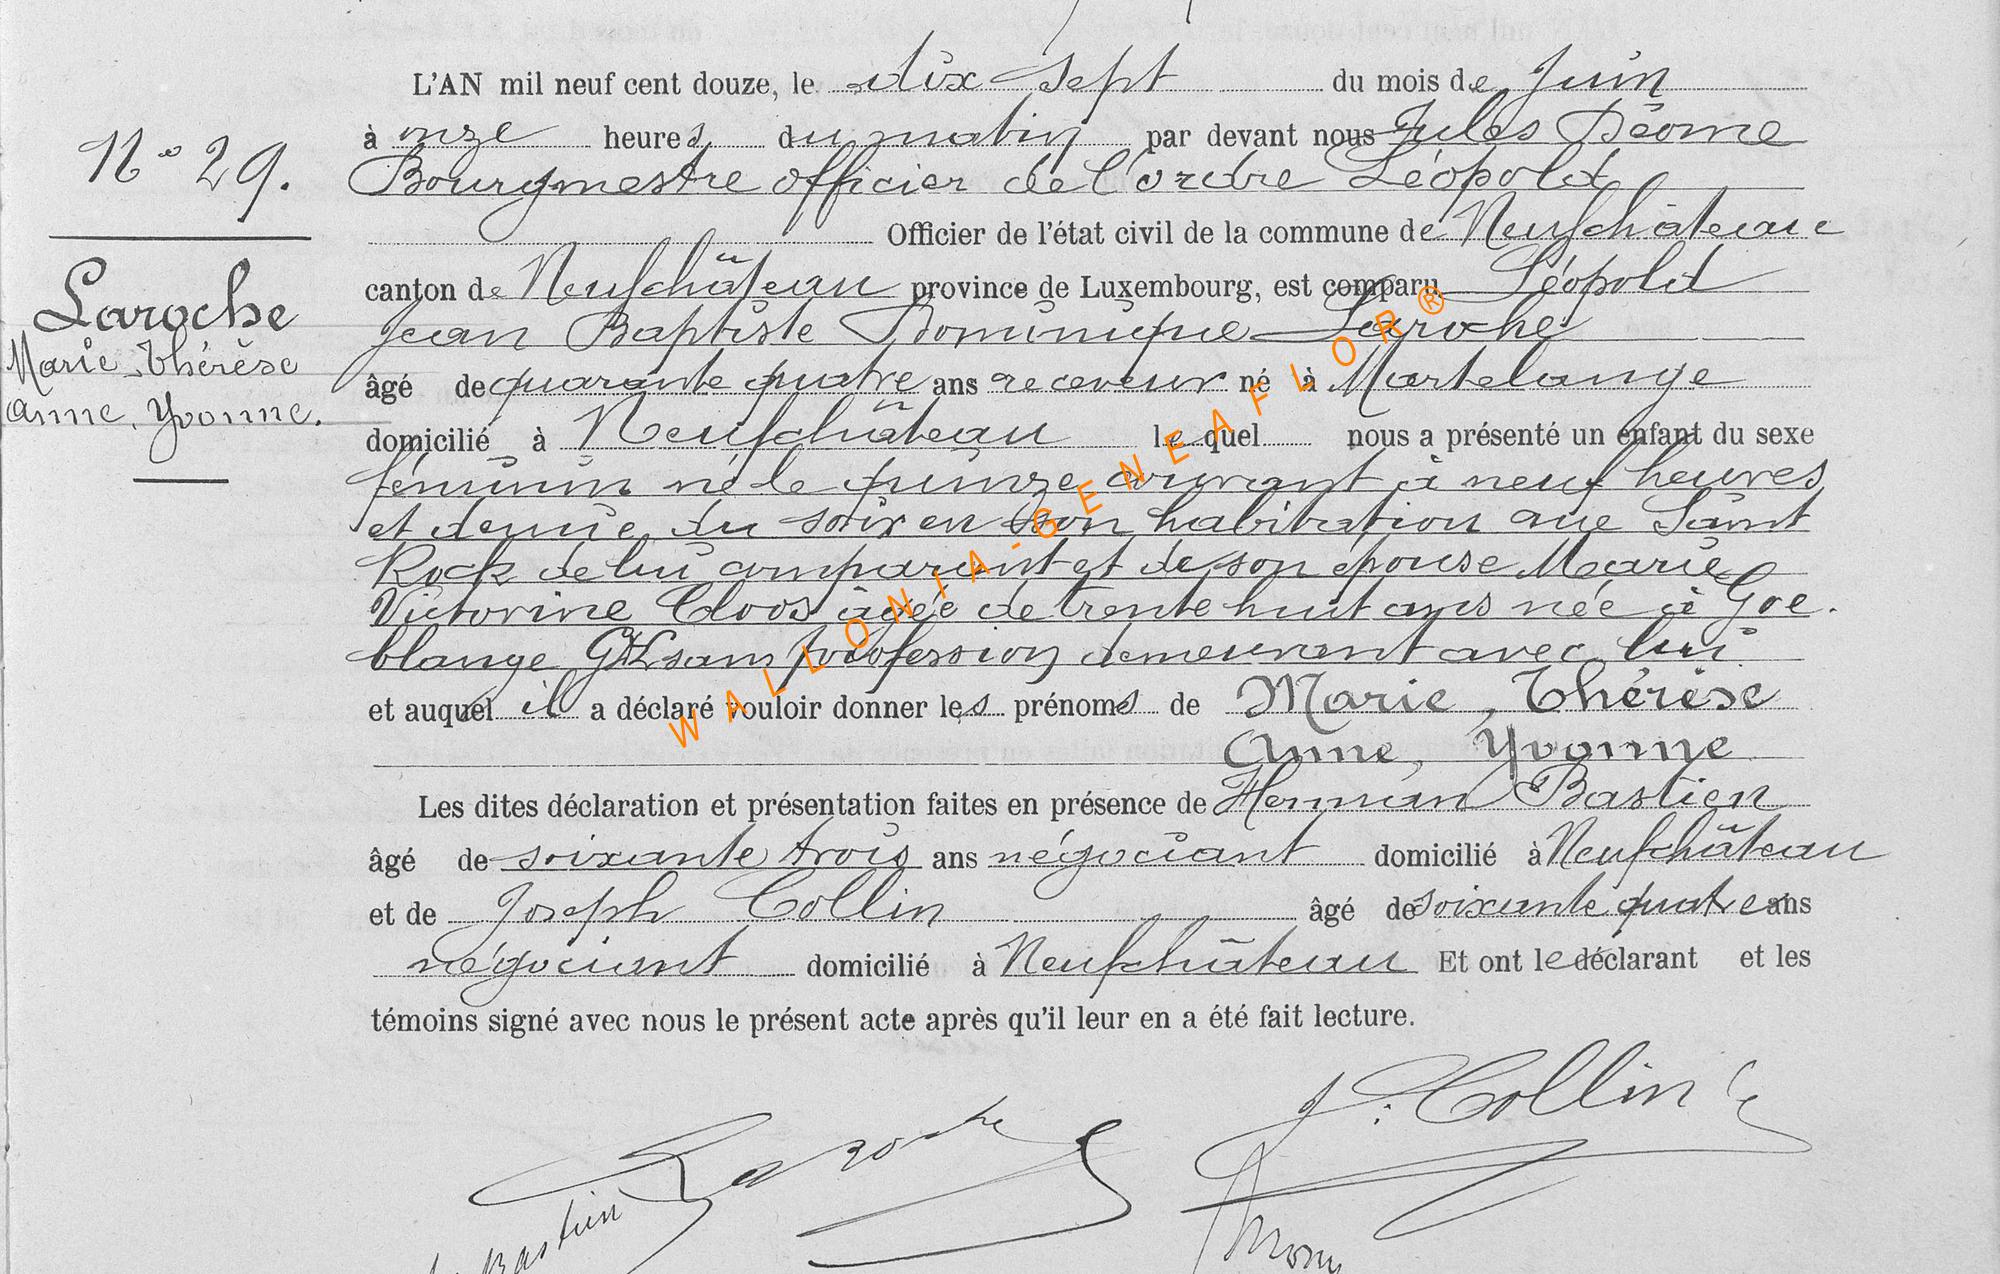 L'AN mil neuf cent douze, le dix sept du mois de Juin
à onze heures du matin par devant nous Jules Déome
Bourgmestre officier de l'ordre Léopold
Officier de l'état civil de la commune de Neufchâteau
canton de Neufchâteau province de Luxembourg, est comparu Léopold
Jean Baptiste Dominique Laroche
âgé de quarante quatre ans receveur né à Martelange
domicilié à Neufchâteau lequel nous a présenté un enfant du sexe
féminin né le quinze courant à neuf heures
et demie du soir en son habitation rue Saint
Rock de lui comparant et de son épouse Marie
Victorine Cloos âgée de trente huit ans née à Goe
blange GdL sans profession demeurant avec lui
et auquel il a déclaré vouloir donner les prénoms de Marie, Thérèse
Anne, Yvonne
Les dites déclaration et présentation faites en présence de Herman Bastien
âgé de soixante trois ans négociant domicilié à Neufchâteau
et de Joseph Collin âgé de soixante quatre ans
négociant domicilié à Neufchâteau Et ont le déclarant et les
témoins signé avec nous le présent acte après qu'il leur en a été fait lecture.
N° 29.
Laroche
Marie Thérèse
Anne, Yvonne.
J. Collin
Laroche
Bastien
WALLONIA-GENEAFLOR®